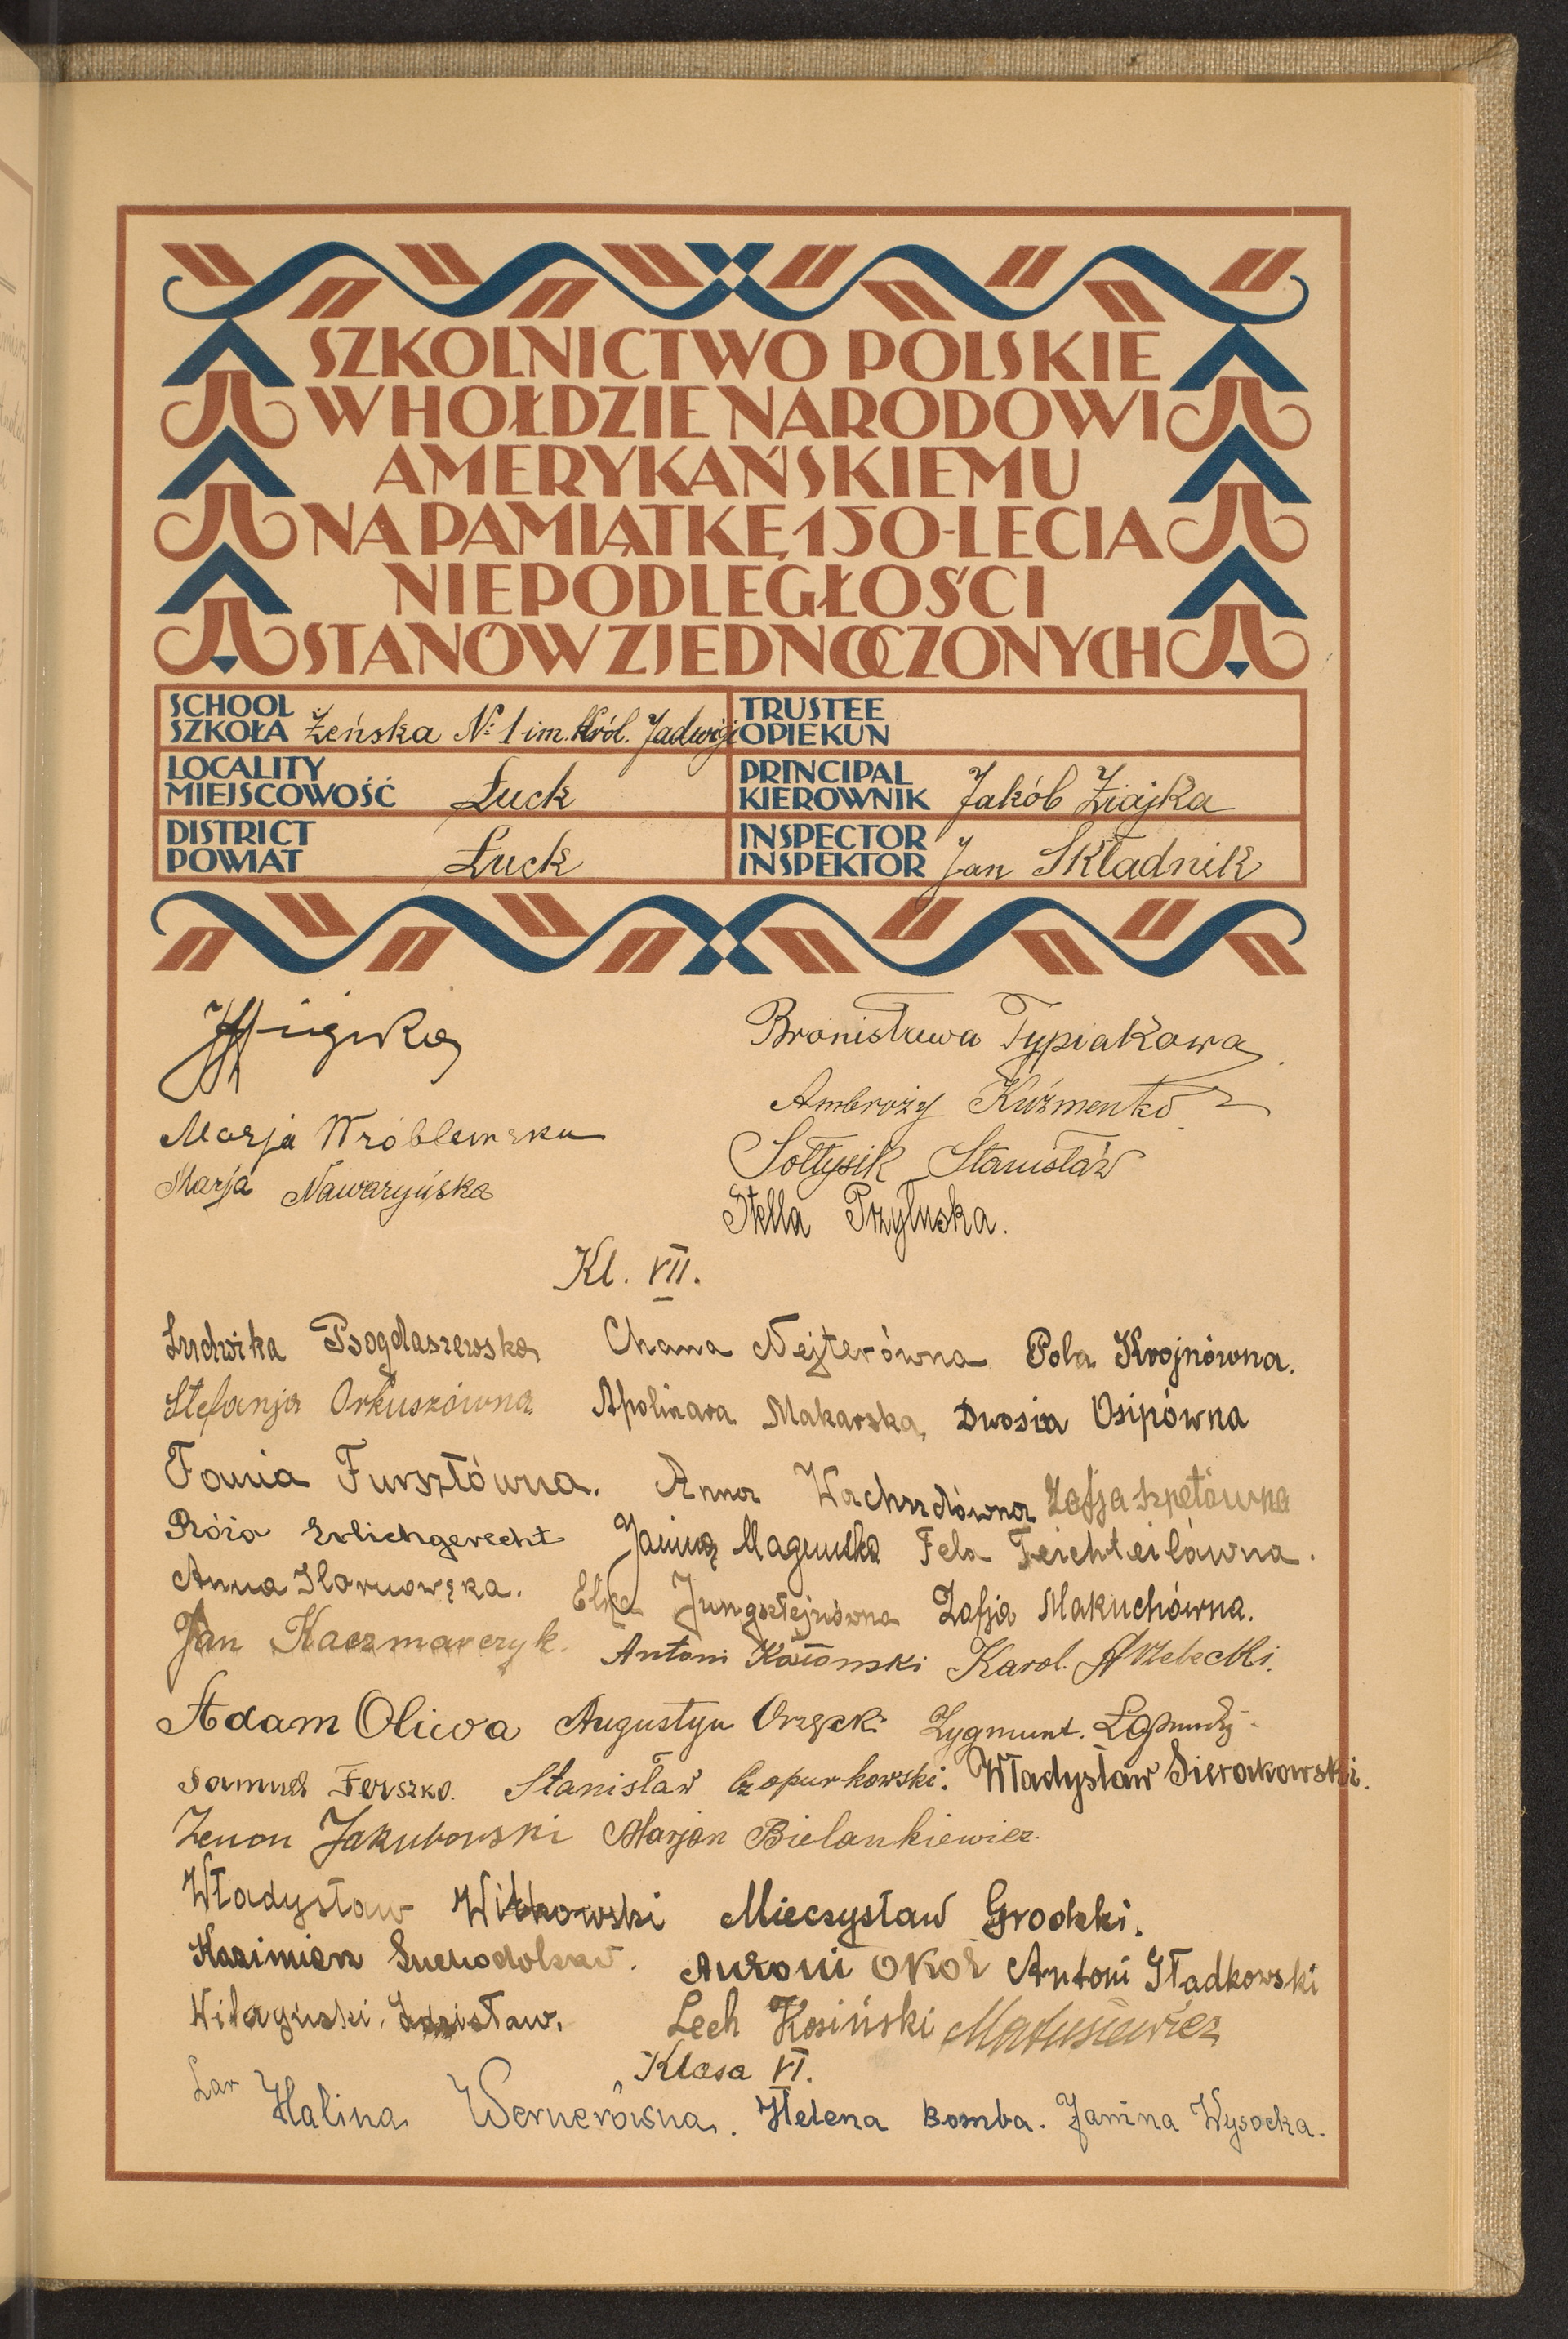 SZKOLNICTWO POLSKIE
W HOŁDZIE NARODOWI
AMERYKAŃSKIEMU
NA PAMIĄTKĘ 150-LECIA
NIEPODLEGŁOŚCI
STANÓW ZJEDNOCZONYCH
SCHOOL
SZKOŁA Żeńska № 1 im. Król. Jadwigi
TRUSTEE
OPIEKUN
LOCALITY
MIEJSCOWOŚĆ Łuck
PRINCIPAL
KIEROWNIK Jakób Ziajka
DISTRICT
POWIAT Łuck
INSPECTOR
INSPEKTOR Jan Składnik
Bronisława Typiakowa
Ambroży Kuźmenko
Marja Wróblewska
Sołtysik Stanisław
Marja Nawaryńska
Stella Przyłuska.
Kl. VII.
Ludwika Bogdaszewska Chana Nejterówna Pola Krojnówna.
Stefanja Orkuszówna Apolinara Makarska, Dwosia Osipówna
Fania Fursztówna. Anna Zofja Szpetówna
Róża Erlichgerecht Janina Fela Teichteilówna.
Anna Elka Jungsztejnówna Zofja Makuchówna.
Jan Kaczmarczyk. Antoni Karol.
Adam Oliwa Augustyn Orzęcki Zygmunt.
Samuel Ferszko. Stanisław Czopurkowski. Władysław Sierakowski.
Zenon Jakubowski Marjan Bielankiewicz.
Władysław Witkowski Mieczysław Grodzki.
Kazimierz Suchodolski. Antoni Okoł Antoni Gładkowski
Lech Kosiński Matusiewicz
Klasa VI.
Lar Halina Wernerówna. Helena Bomba. Janina Wysocka.